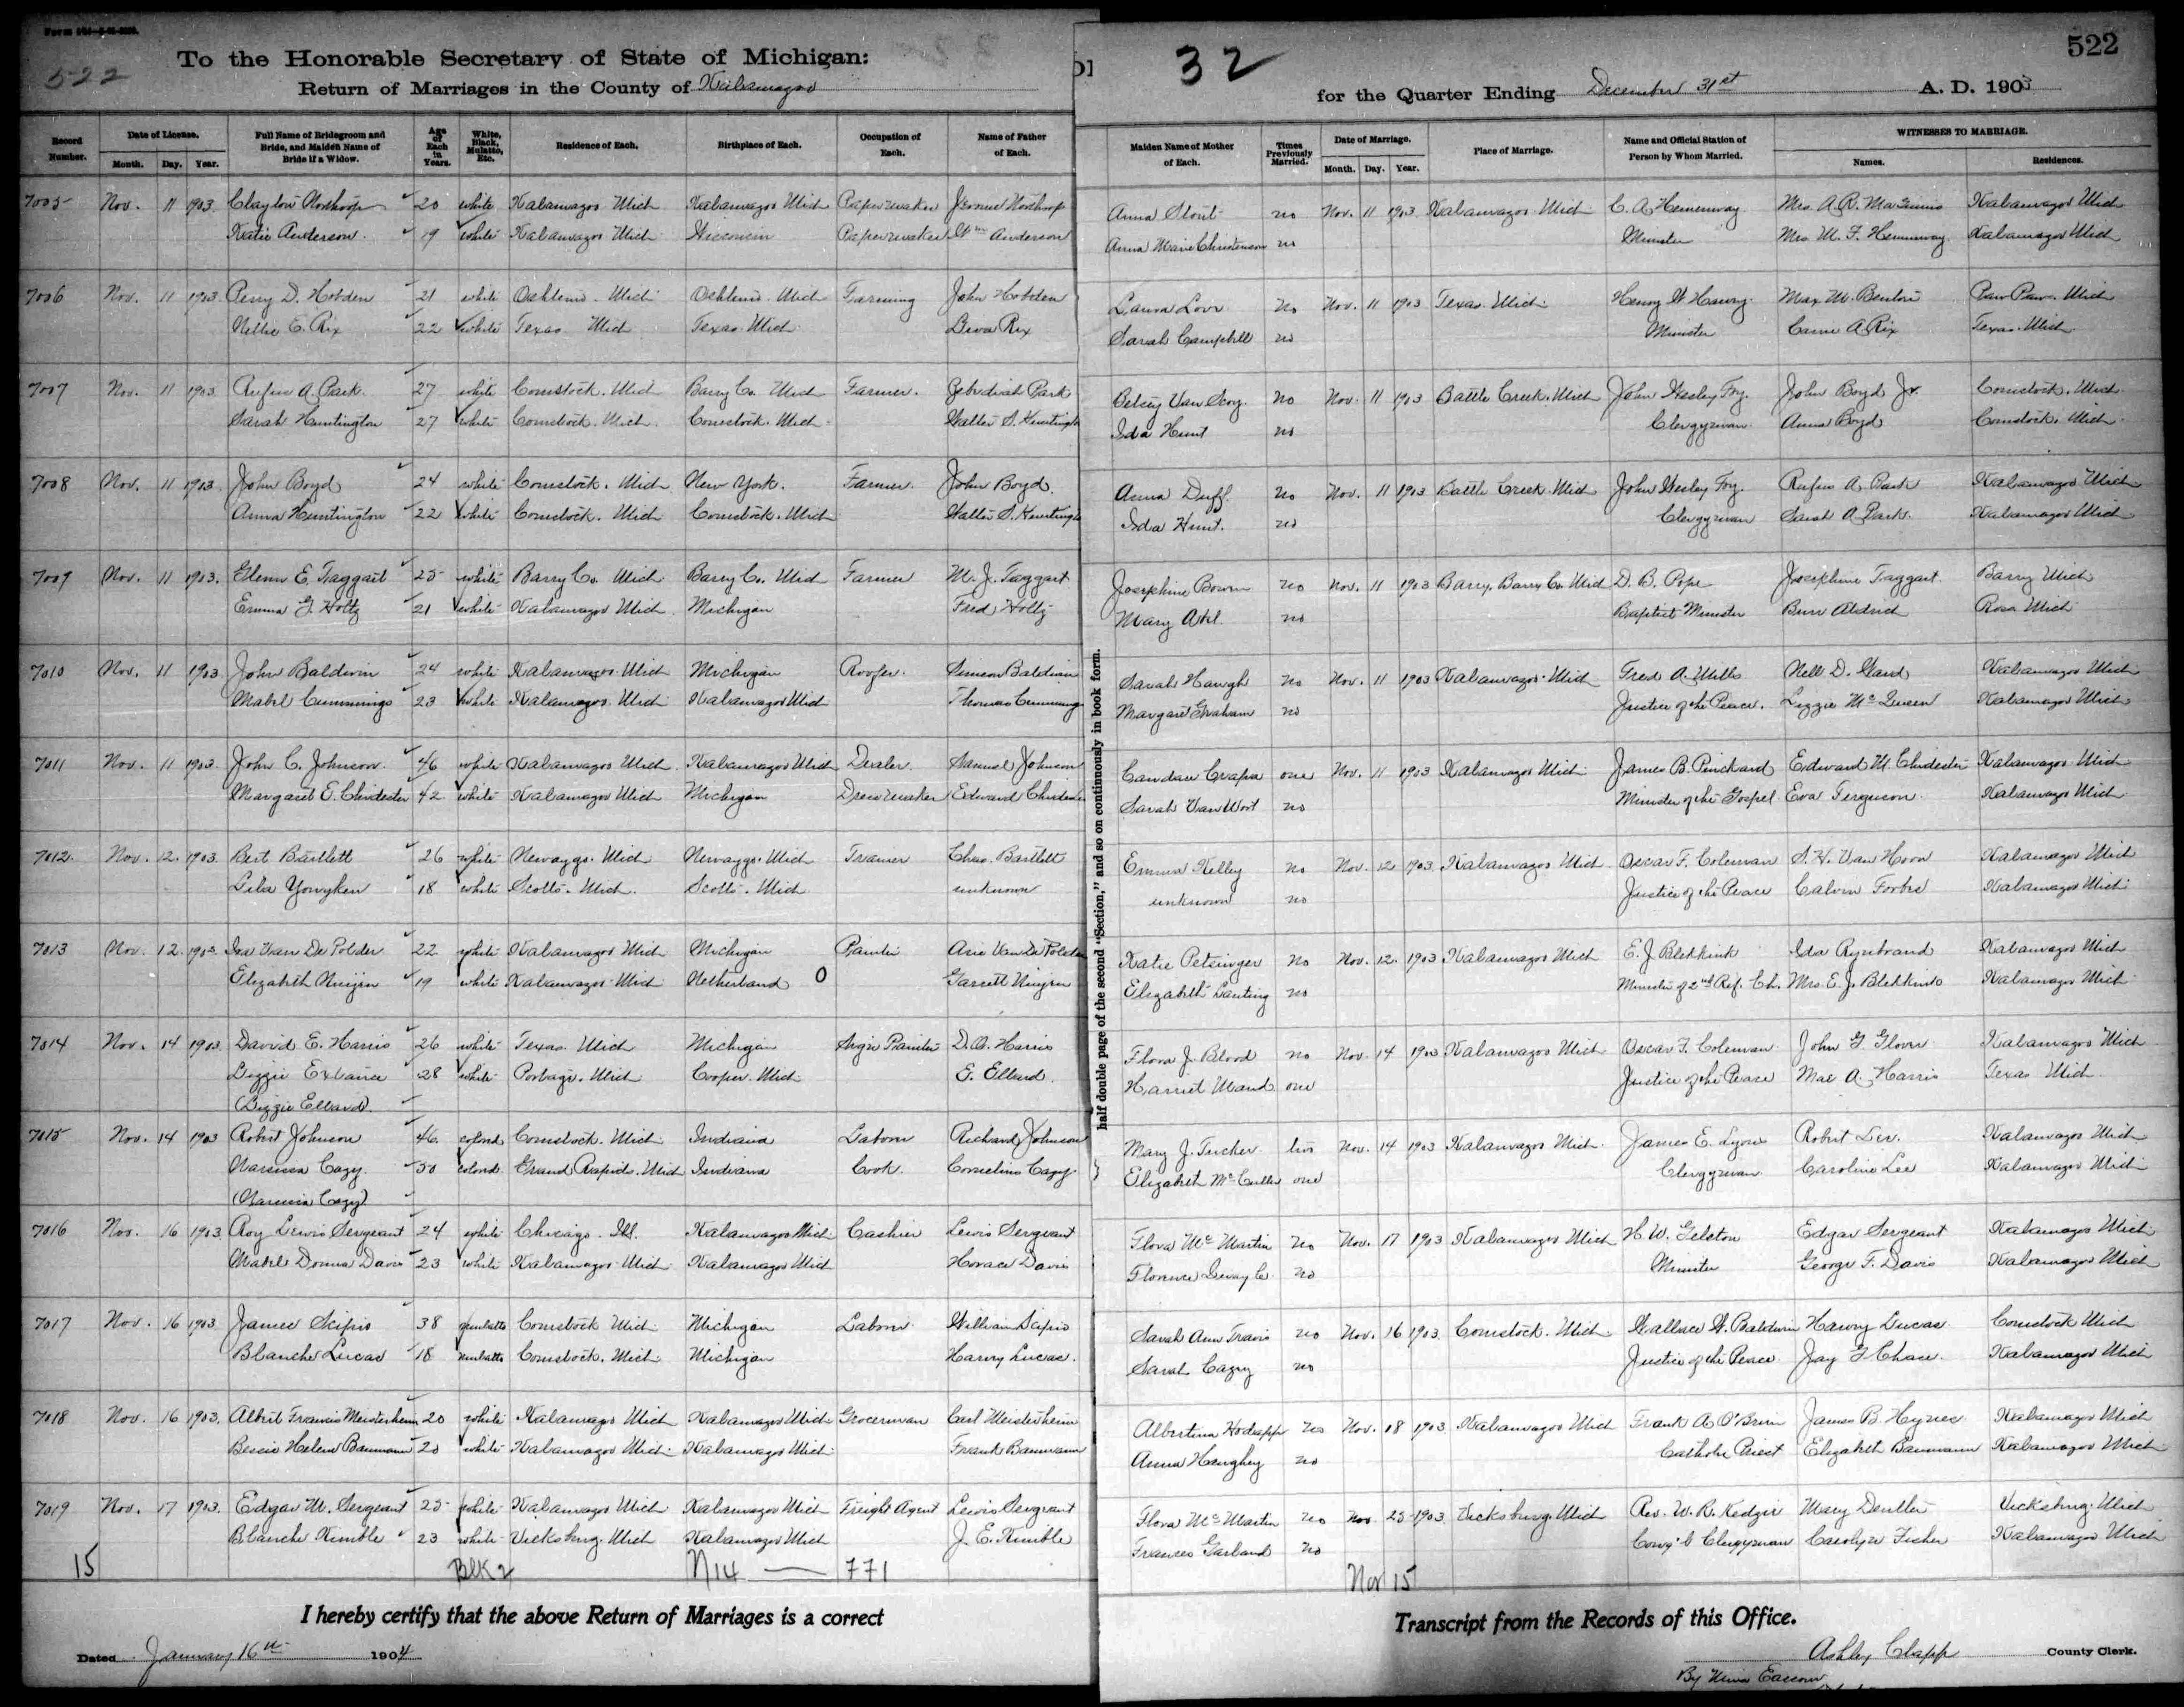 522
To the Honorable Secretary of State of Michigan:
Return of Marriages in the County of Kalamazoo
Record Number.
Date of License.
Month. Day. Year.
Full Name of Bridegroom and Bride, and Maiden Name of Bride if a Widow.
Age of Each in Years.
White, Black, Mulatto, Etc.
Residence of Each.
Birthplace of Each.
Occupation of Each.
Name of Father of Each.
7005 Nov. 11 1903 Clayton Northrop 20 white Kalamazoo Mich Kalamazoo Mich Papermaker Jerome Northrop
Katie Anderson 19 white Kalamazoo Mich Wisconsin Papermaker Wm Anderson
7006 Nov. 11 1903 Perry D. Hobden 21 white Oshtemo Mich Oshtemo Mich Farming John Hobden
Nellie E. Rix 22 white Texas Mich Texas Mich Rix
7007 Nov. 11 1903 Rufus A. Park 27 white Comstock. Mich Barry Co. Mich Farmer. Park
Sarah Huntington 27 white Comstock. Mich. Comstock. Mich Walter S. Huntington
7008 Nov. 11 1903 John Boyd 24 white Comstock. Mich New York. Farmer. John Boyd
Anna Huntington 22 white Comstock. Mich Comstock. Mich Walter S. Huntington
7009 Nov. 11 1903. Glenn E. Taggart 25 white Barry Co. Mich Barry Co. Mich Farmer M. J. Taggart
Emma G. Holtz 21 white Kalamazoo Mich Michigan Fred Holtz
7010 Nov. 11 1903 John Baldwin 24 white Kalamazoo Mich Michigan Roofer. Simeon Baldwin
Mabel Cummings 23 white Kalamazoo Mich Kalamazoo Mich Thomas Cummings
7011 Nov. 11 1903 John C. Johnson 46 white Kalamazoo Mich Kalamazoo Mich Dealer. Samuel Johnson
Margaret E. Chidester 42 white Kalamazoo Mich Michigan Dressmaker Edward Chidester
7012 Nov. 12. 1903. Bert Bartlett 26 white Newaygo. Mich Newaygo. Mich Chas. Bartlett
Lila 18 white Scotts. Mich. Scotts. Mich unknown
7013 Nov. 12 1903 Ira Van De Polder 22 white Kalamazoo Mich Michigan Painter Arie Van De Polder
Elizabeth 19 white Kalamazoo Mich Netherland O Garrett
7014 Nov. 14 1903. David E. Harris 26 white Texas. Mich Michigan Sign Painter D. A. Harris
Lizzie 28 white Portage. Mich Cooper. Mich E. Ellard
(Lizzie Ellard)
7015 Nov. 14 1903 Robert Johnson 46 colored Comstock. Mich Indiana Laborer Richard Johnson
Cazy 50 colored Grand Rapids. Mich Indiana Cook Cornelius Cazy
( Cazy)
7016 Nov. 16 1903 Roy Lewis Sergeant 24 white Chicago. Ill. Kalamazoo Mich Cashier Lewis Sergeant
Mabel Donna Davis 23 white Kalamazoo Mich Kalamazoo Mich Horace Davis
7017 Nov. 16 1903 James Scipio 38 mulatto Comstock Mich Michigan Laborer William Scipio
Blanche Lucas 18 mulatto Comstock. Mich Michigan Harry Lucas.
7018 Nov. 16 1903. Albert Francis Meisterheim 20 white Kalamazoo Mich Kalamazoo Mich Groceryman Carl Meisterheim
Bessie Helene Baumann 20 white Kalamazoo Mich Kalamazoo Mich Frank Baumann
7019 Nov. 17 1903. Edgar M. Sergeant 25 white Kalamazoo Mich Kalamazoo Mich Freight Agent Lewis Sergeant
Blanche Kimble 23 white Vicksburg. Mich Kalamazoo Mich J. E. Kimble
15 Blk 2 N14 — 771
I hereby certify that the above Return of Marriages is a correct
Dated January 16th 1904
32
522
for the Quarter Ending December 31st A. D. 1903
Maiden Name of Mother of Each.
Times Previously Married.
Date of Marriage.
Month. Day. Year.
Place of Marriage.
Name and Official Station of Person by Whom Married.
WITNESSES TO MARRIAGE.
Names. Residences.
half double page of the second "Section," and so on continuously in book form.
Anna Stout no Nov. 11 1903 Kalamazoo Mich C. A. Hemenway Mrs. A. R. Kalamazoo Mich
Anna Marie Christenson no Minister Mrs M. F. Hemenway Kalamazoo Mich
Laura no Nov. 11 1903 Texas. Mich Henry W. Max M. Benton Paw Paw. Mich
Sarah Campbell no Minister Carrie A Rix Texas. Mich
Betsey Van Scoy. no Nov. 11 1903 Battle Creek. Mich John Wesley Foy. John Boyd Jr. Comstock. Mich
Ida Hunt no Clergyman Anna Boyd Comstock. Mich
Anna Duff. no Nov. 11 1903 Battle Creek. Mich John Wesley Foy. Rufus A. Park Kalamazoo Mich
Ida Hunt. no Clergyman Sarah A Park. Kalamazoo Mich
Josephine no Nov. 11 1903 Barry, Barry Co. Mich D. B. Pope Josephine Taggart Barry Mich
Mary no Baptist Minister Burr Aldrich Ross Mich
Sarah Haugh no Nov. 11 1903 Kalamazoo Mich Fred A. Mills Nell D. Kalamazoo Mich
Margaret Graham no Justice of the Peace. Lizzie McQueen Kalamazoo Mich
Candace one Nov. 11 1903 Kalamazoo Mich James B. Pinckard Edward M. Chidester Kalamazoo Mich
Sarah Van Wort no Minister of the Gospel Eva Ferguson Kalamazoo Mich
Emma Kelley no Nov. 12 1903 Kalamazoo Mich Oscar F. Coleman S. H. Van Horn Kalamazoo Mich
unknown no Justice of the Peace Calvin Forbes Kalamazoo Mich
Katie Petsinger no Nov. 12. 1903 Kalamazoo Mich E. J. Blekkink Ida Rynbrand Kalamazoo Mich
Elizabeth Lanting no Minister of 2nd Ref. Ch. Mrs. E. J. Blekkink Kalamazoo Mich
Flora J. Blood no Nov. 14 1903 Kalamazoo Mich Oscar F. Coleman John G. Glover Kalamazoo Mich
Harriet one Justice of the Peace Mae A. Harris Texas Mich
Mary J. Tucker. two Nov. 14 1903 Kalamazoo Mich James E. Lyons Robert Lee. Kalamazoo Mich
Elizabeth one Clergyman Caroline Lee Kalamazoo Mich
Flora McMartin no Nov. 17 1903 Kalamazoo Mich H. W. Gelston Edgar Sergeant Kalamazoo Mich
Florence no Minister George F. Davis Kalamazoo Mich
Sarah Ann Travis no Nov. 16 1903 Comstock. Mich Wallace W. Baldwin Harry Lucas Comstock Mich
Sarah Cazy no Justice of the Peace Jay Chase Kalamazoo Mich
Albertina Hodapp no Nov. 18 1903 Kalamazoo Mich Frank A. O'Brien James B. Hynes Kalamazoo Mich
Anna Haughey no Catholic Priest Elizabeth Baumann Kalamazoo Mich
Flora McMartin no Nov. 25 1903 Vicksburg. Mich Rev. W. R. Kedzie Mary Dentler Vicksburg. Mich
Frances Garland no Cong'l Clergyman Carolyn Fisher Kalamazoo Mich
Nov 15
Transcript from the Records of this Office.
Ashley Clapp County Clerk.
By